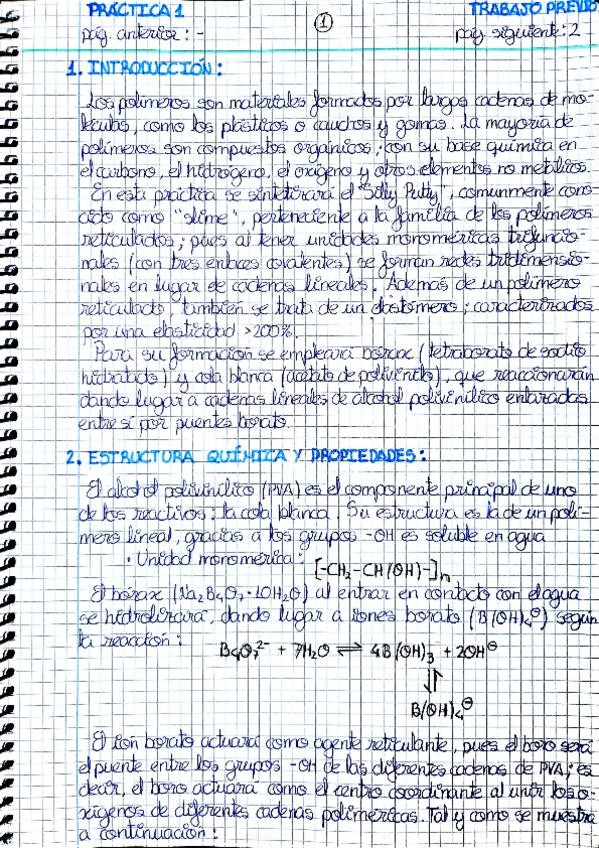 PRÁCTICA 1
TRABAJO PREVIO
pág anterior : -
1
pág siguiente: 2
1. INTRODUCCIÓN:
Los polímeros son materiales formados por largas cadenas de mo-
léculas, como los plásticos o cauchos y gomas. La mayoría de
polímeros son compuestos orgánicos, con su base química en
el carbono, el hidrógeno, el oxígeno y otros elementos no metálicos.
En esta práctica se sintetizará el "Silly Putty", comunmente cono-
cido como "slime", perteneciente a la familia de los polímeros
reticulados; pues al tener unidades monoméricas trifuncio-
nales (con tres enlaces covalentes) se forman redes tridimensio-
nales en lugar de cadenas lineales. Además de un polímero
reticulado, también se trata de un elastómero; caracterizados
por una elasticidad >200%.
Para su formación se empleará bórax (tetraborato de sodio
hidratado) y cola blanca (acetato de polivinilo), que reaccionarán
dando lugar a cadenas lineales de alcohol polivinílico enlazadas
entre sí por puentes borato.
2. ESTRUCTURA QUÍMICA Y PROPIEDADES:
El alcohol polivinílico (PVA) es el componente principal de uno
de los reactivos: la cola blanca. Su estructura es la de un polí-
mero lineal, gracias a los grupos -OH es soluble en agua
· Unidad monomérica: [-CH₂-CH(OH)-]n
El bórax (Na₂B₄O₇·10H₂O) al entrar en contacto con el agua
se hidrolizará, dando lugar a iones borato (B(OH)₄⊖) según
la reacción:
B₄O₇²⁻ + 7H₂O ⇌ 4B(OH)₃ + 2OH⊖
⇅
B(OH)₄⊖
El ión borato actuará como agente reticulante, pues el boro será
el puente entre los grupos -OH de las diferentes cadenas de PVA; es
decir, el boro actuará como el centro coordinante al unir los o-
xígenos de diferentes cadenas poliméricas. Tal y como se muestra
a continuación: